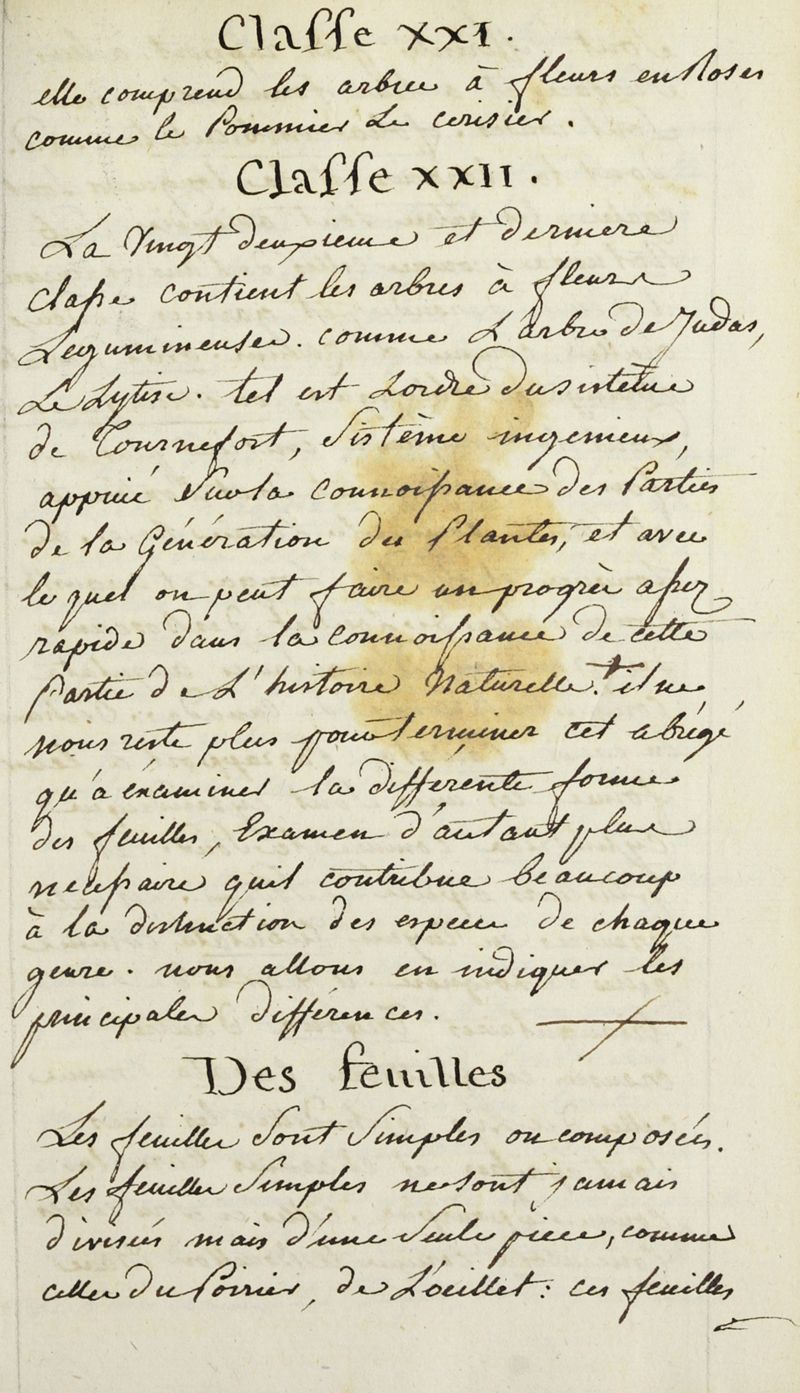 Classe XXI.
elle comprend les arbres à fleurs en Roses
comme le Pommier Le cerisier.
Classe XXII.
La Vingt deuxieme et derniere
classe contient les arbres à fleurs
Legumineuses. comme L'arbre de Judas,
Le Cytise. tel est Lordre du sistême
de Tournefort, Sistême ingenieux,
appuié Sur la connoissance des Parties
de la Génération des Plantes, et avec
le quel on peut faire un progrès assez
rapide dans la connoissance de cette
Partie de L'histoire Naturelle. + il ne
nous reste plus pour terminer cet abrégé
qu'à éxaminer la différente forme
des feuilles, Examen d'autant plus
necessaire quil contribue beaucoup
à la distinction des especes de chaque
genre. nous allons en indiquer les
principales différences.
Des feuilles
Les feuilles Sont Simples ou composées.
Les feuilles Simples ne sont jamais
divisées mais d'une Seule piece, comme
celles du Poirier, de L'oeillet: ces feuilles